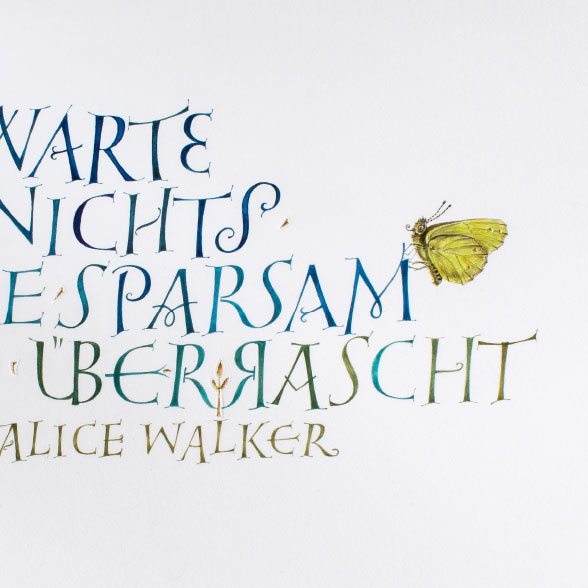 WARTE
NICHTS
E SPARSAM
ÜBERRASCHT
ALICE WALKER